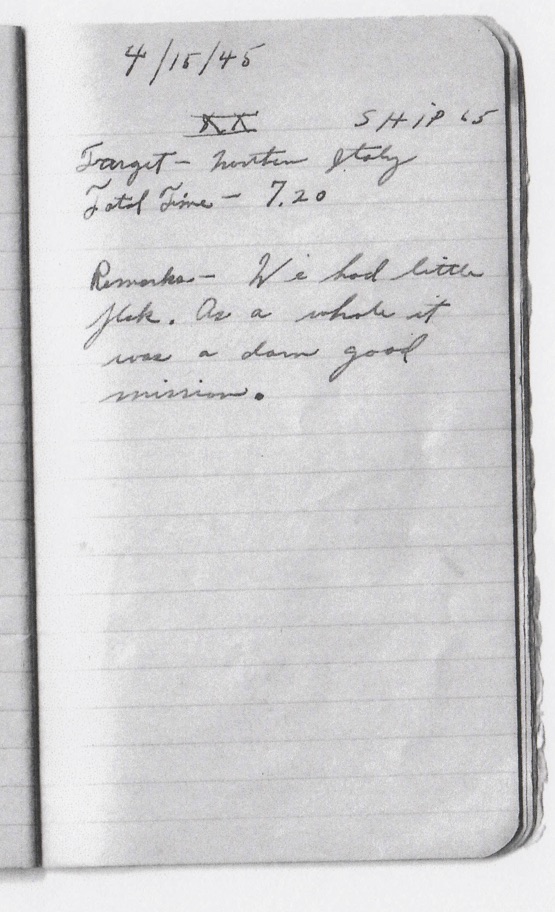 4/15/45
XX SHiP 65
Target - northern Italy
Total Time - 7.20
Remarks - We had little
flak. As a whole it
was a darn good
mission.